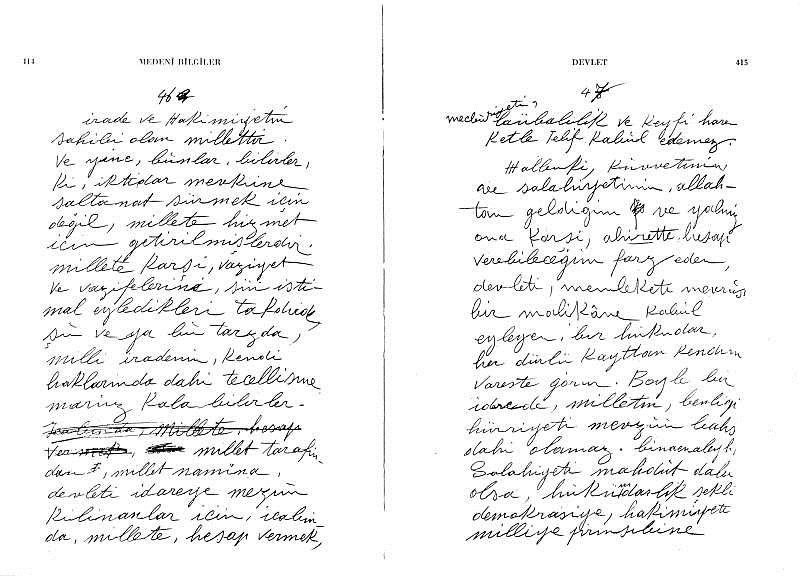 414
MEDENİ BİLGİLER
46
irade ve Hakimiyetin
sahibi olan millettir.
Ve yine, bunlar, bilirler,
ki, iktidar mevkiine
saltanat sürmek için
değil, millete hizmet
için getirilmişlerdir.
millete karşı, vaziyet
ve vazifelerini, sui isti-
mal eyledikleri takdirde
şu ve ya bu tarzda,
milli iradenin, kendi
haklarında dahi tecellisine
maruz kala bilirler.
icabında, millete, hesap
vermek, millet tarafın
dan, millet namına,
devleti idareye mezun
kılınanlar için, icabın-
da, millete, hesap vermek,
DEVLET
415
47
mecburiyeti,
laübalilik ve keyfi hare
ketle telif kabul edemez.
Halbuki, kuvvetinin
ve salahiyetinin, allah-
tan geldiğini ve yalnız
ona karşı, ahirette hesap
verebileceğini farz eden,
devleti, memleketi mevrus
bir malikâne kabul
eyleyen, bir hükûmdar,
her dürlü kayıttan kendini
vareste görür. Böyle bir
idarede, milletin, benliği
hürriyeti mevzuu bahs
dahi olamaz. binaenaleyh,
Salahiyeti mahdut dahi
olsa, hükümdarlık şekli
demokrasiye, hakimiyeti
milliye prensibine